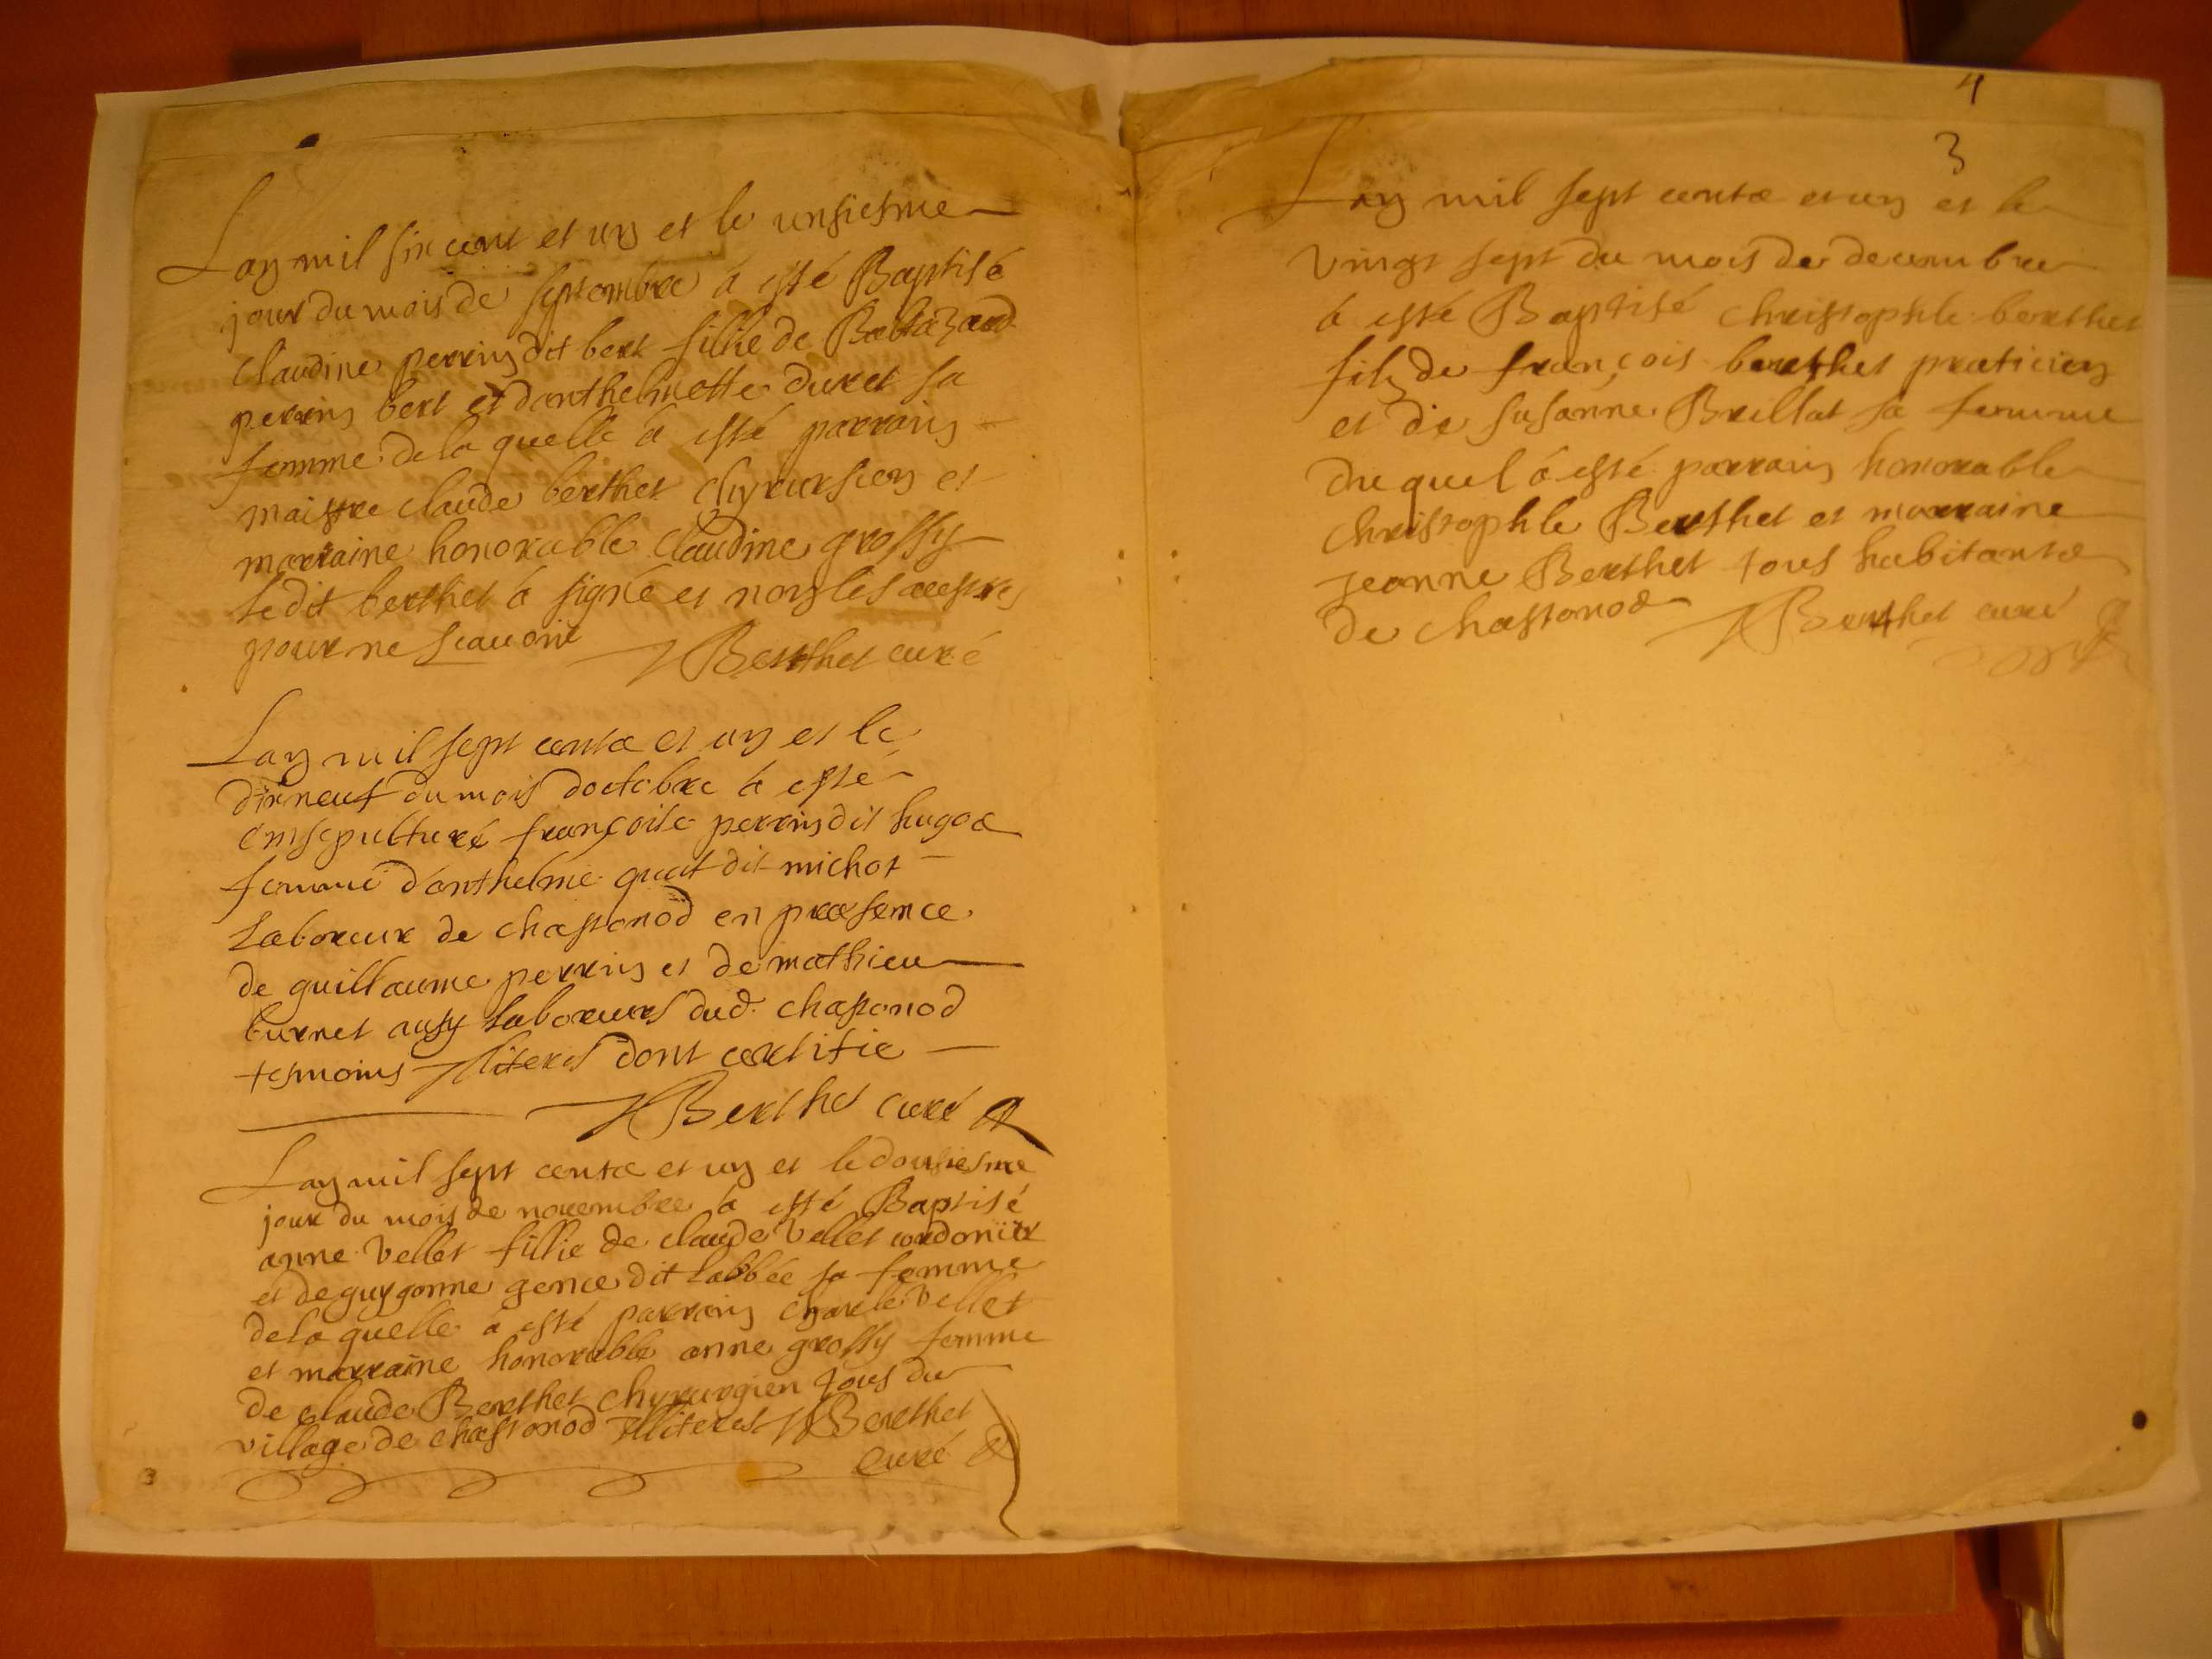 Lan mil six cent et un et le unsiesme
jour du mois de septembre à esté Baptisé
Claudine perrin dit bert fillie de Baltazard
perrin bert et danthelmette duret sa
femme de la quelle à esté parrain
maistre claude berthet Chyrursien et
marraine honorable Claudine grossy
ledit berthet à signé et non les aultres
pour ne scavoir Berthet curé
Lan mil sept cents et un et le
dixneuf du mois doctobre à esté
ensepulturé françoise perrin dit hugoz
femme d'anthelme quat dit michot
Laboreur de chastonod en presence
de guillaume perrin et de mathieu
burnet ausy laboreurs dud. chastonod
tesmoins illiteres dont certifie
Berthet curé
Lan mil sept cents et un et le dousiesme
jour du mois de novembre à esté Baptisé
anne vellet fillie de claude vellet cordonier
et de guygonne gence dit Labbée sa femme
de la quelle à esté parrain charle vellet
et marraine honorable anne grossy femme
de claude Berthet chyrurgien tous du
village de chastonod illiteres Berthet
curé
3
4
3
Lan mil sept cents et un et le
vingt sept du mois de decembre
à esté Baptisé christophle berthet
filz de françois berthet praticien
et de susanne Brillat sa femme
du quel à esté parrain honorable
christophle Berthet et marraine
jeanne Berthet tous habitants
de chastonod Berthet curé